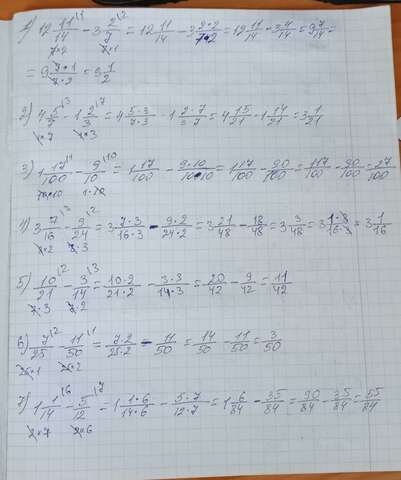 1) 12 11/14 - 3 2/7 = 12 11/14 - 3 2·2/7·2 = 12 11/14 - 3 4/14 = 9 7/14 =
= 9 7·1/7·2 = 9 1/2
2) 4 5/7 - 1 2/3 = 4 5·3/7·3 - 1 2·7/3·7 = 4 15/21 - 1 14/21 = 3 1/21
3) 1 17/100 - 9/10 = 1 17/100 - 9·10/10·10 = 1 17/100 - 90/100 = 117/100 - 90/100 = 27/100
4) 3 7/16 - 9/24 = 3 7·3/16·3 - 9·2/24·2 = 3 21/48 - 18/48 = 3 3/48 = 3 1·3/16·3 = 3 1/16
5) 10/21 - 3/14 = 10·2/21·2 - 3·3/14·3 = 20/42 - 9/42 = 11/42
6) 7/25 - 11/50 = 7·2/25·2 - 11/50 = 14/50 - 11/50 = 3/50
7) 1 1/14 - 5/12 = 1 1·6/14·6 - 5·7/12·7 = 1 6/84 - 35/84 = 90/84 - 35/84 = 55/84